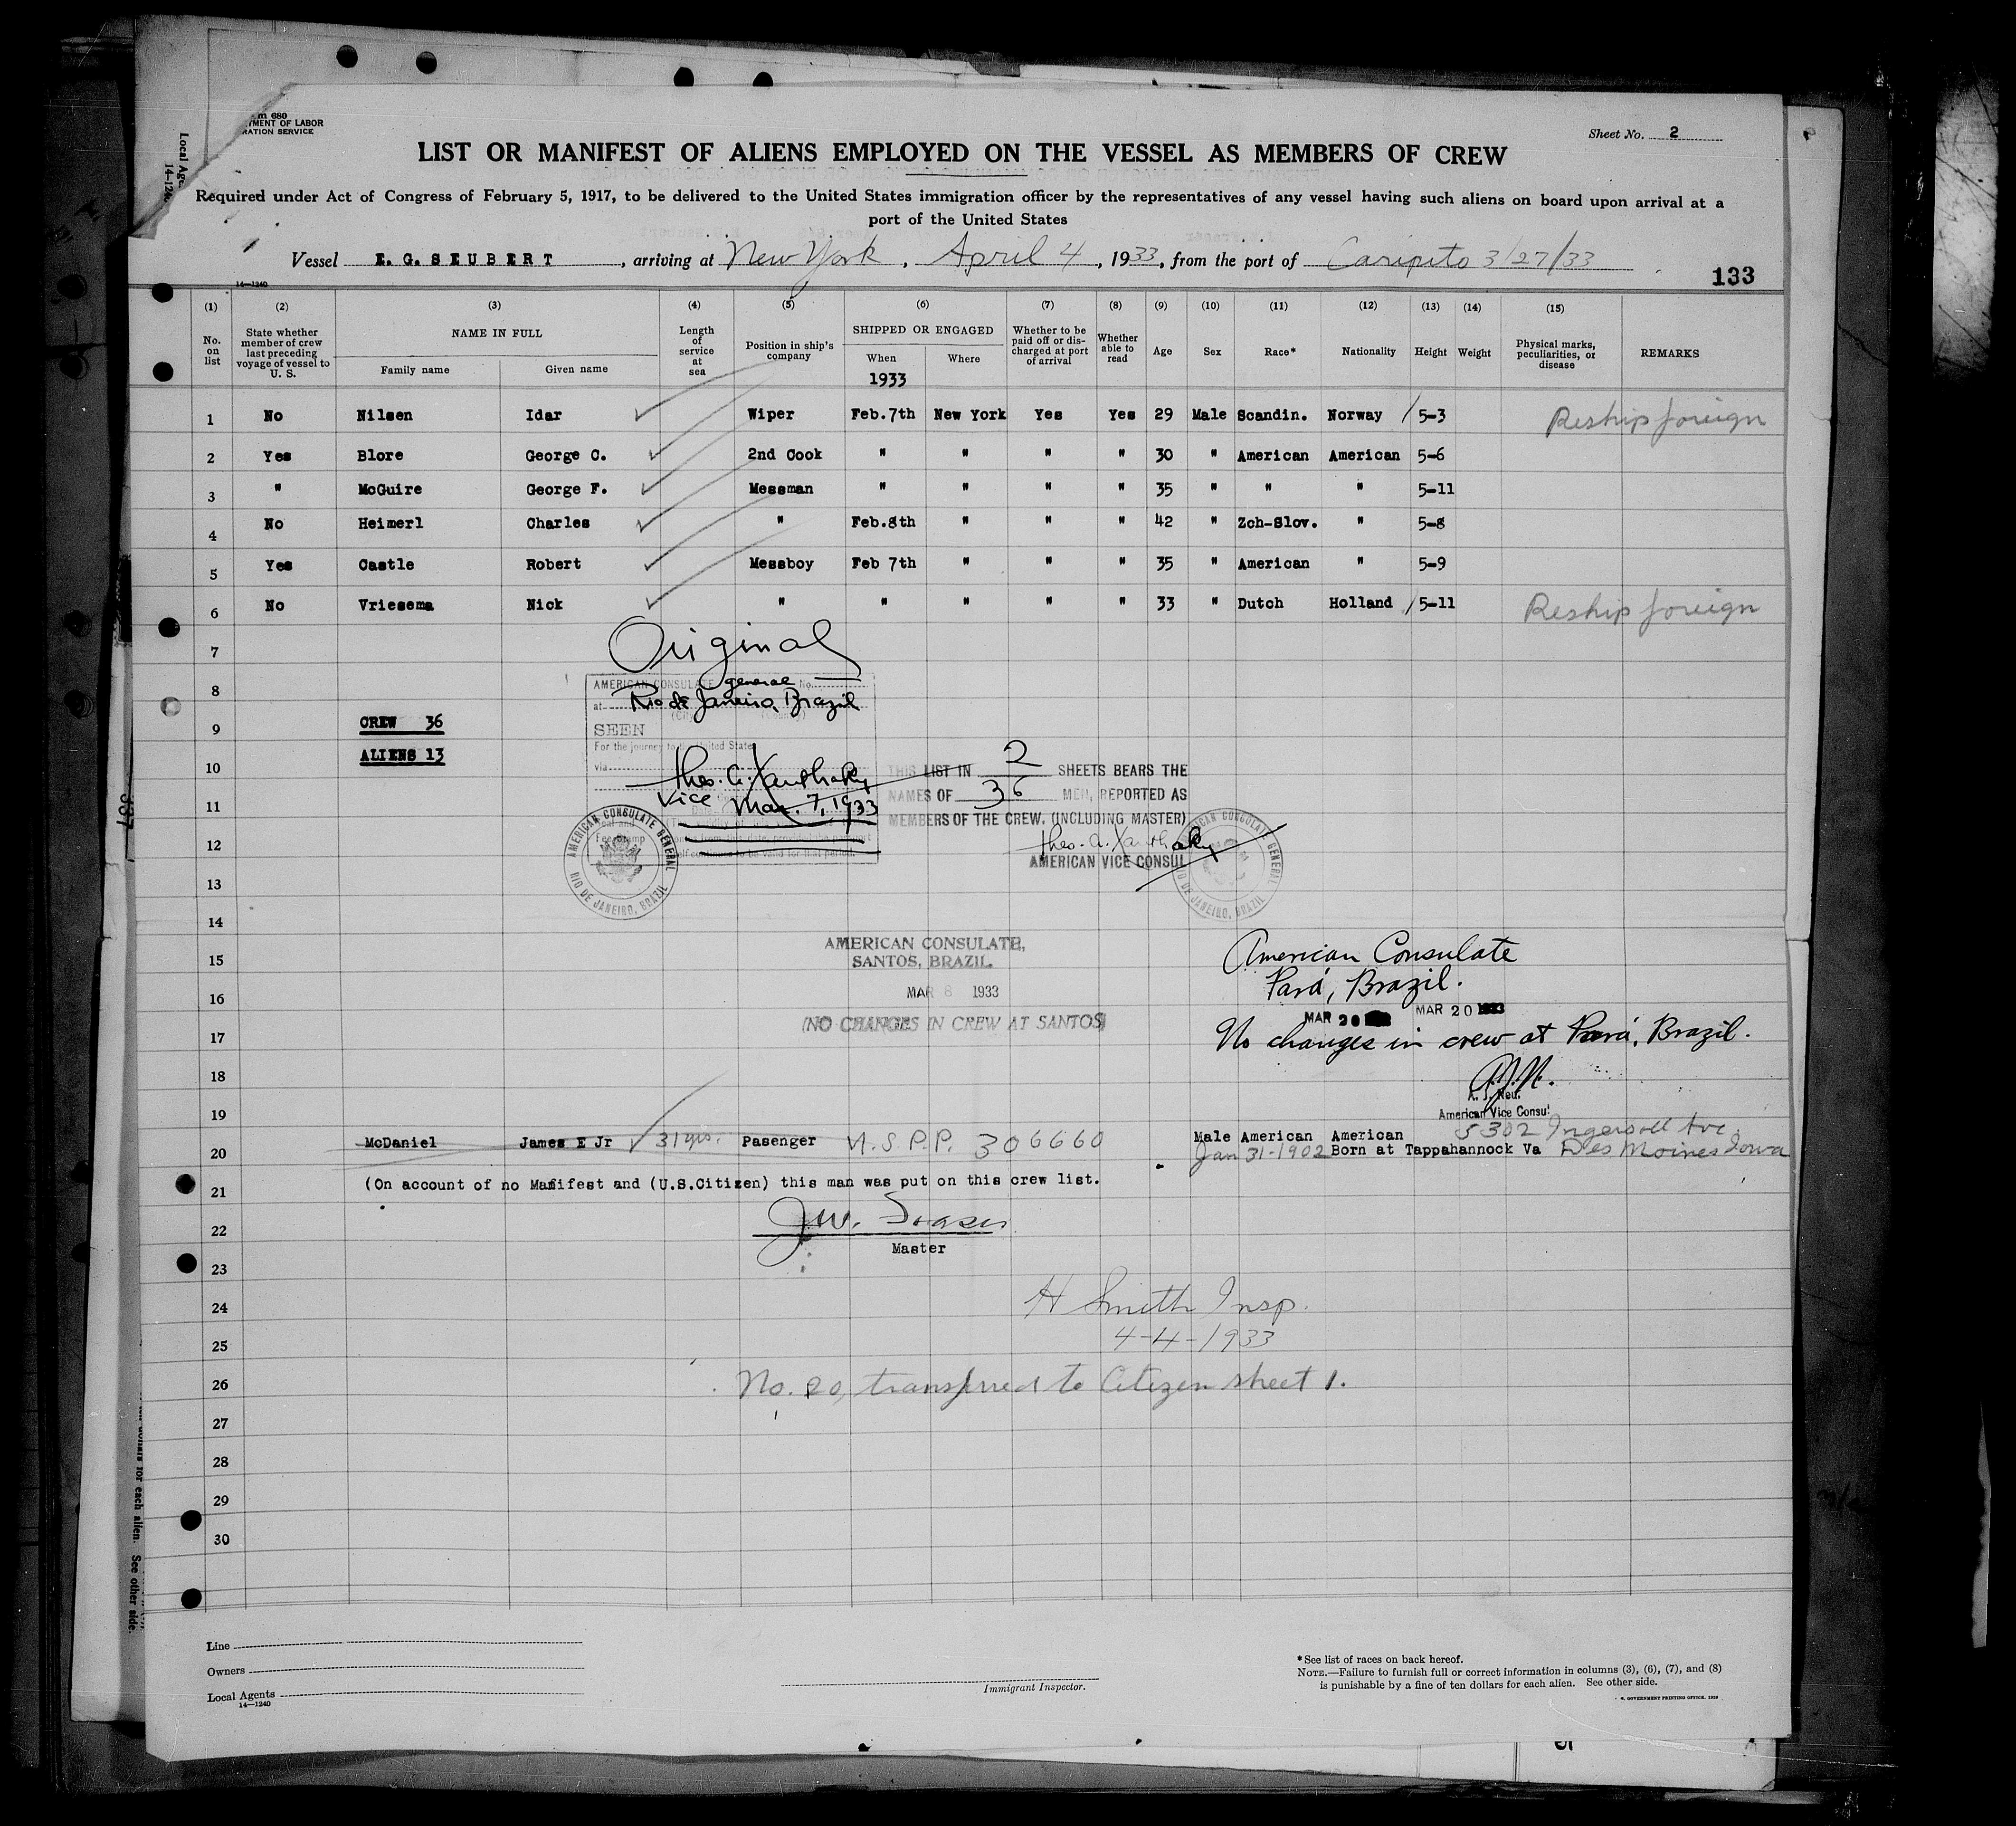 Form 680
DEPARTMENT OF LABOR
IMMIGRATION SERVICE
Sheet No. 2
LIST OR MANIFEST OF ALIENS EMPLOYED ON THE VESSEL AS MEMBERS OF CREW
Required under Act of Congress of February 5, 1917, to be delivered to the United States immigration officer by the representatives of any vessel having such aliens on board upon arrival at a
port of the United States
Vessel E. G. SEUBERT, arriving at New York, April 4, 1933, from the port of Caripito 3/27/33
133
14—1240
(1) (2) (3) (4) (5) (6) (7) (8) (9) (10) (11) (12) (13) (14) (15)
No. on list
State whether member of crew last preceding voyage of vessel to U. S.
NAME IN FULL
Family name Given name
Length of service at sea
Position in ship's company
SHIPPED OR ENGAGED
When Where
1933
Whether to be paid off or discharged at port of arrival
Whether able to read
Age
Sex
Race*
Nationality
Height
Weight
Physical marks, peculiarities, or disease
REMARKS
1 No Nilsen Idar Wiper Feb.7th New York Yes Yes 29 Male Scandin. Norway 5-3 Reship foreign
2 Yes Blore George C. 2nd Cook " " " " 30 " American American 5-6
3 " McGuire George F. Messman " " " " 35 " " " 5-11
4 No Heimerl Charles " Feb.8th " " " 42 " Zch-Slov. " 5-8
5 Yes Castle Robert Messboy Feb 7th " " " 35 " American " 5-9
6 No Vriesema Nick " " " " " 33 " Dutch Holland 5-11 Reship foreign
7
Original
8
AMERICAN CONSULATE general No.
at Rio de Janeiro, Brazil
9 CREW 36
SEEN
For the journey to the United States
10 ALIENS 13
via
Theo. A. Xanthaky
Vice Mar. 7, 1933
THIS LIST IN 2 SHEETS BEARS THE
11 NAMES OF 36 MEN, REPORTED AS
MEMBERS OF THE CREW. (INCLUDING MASTER)
12 Theo. A. Xanthaky
AMERICAN VICE CONSUL
AMERICAN CONSULATE GENERAL RIO DE JANEIRO, BRAZIL
AMERICAN CONSULATE GENERAL RIO DE JANEIRO, BRAZIL
13
14
AMERICAN CONSULATE,
SANTOS, BRAZIL
MAR 8 1933
(NO CHANGES IN CREW AT SANTOS)
15 American Consulate
16 Pará, Brazil.
MAR 20 MAR 20 1933
17 No changes in crew at Pará, Brazil.
18 A.J.N.
A. J. Neu.
American Vice Consul
19
20 McDaniel James E Jr 31 yrs. Pasenger U.S.P.P. 306660 Male American American 5302 Ingersoll Ave.
Jan 31-1902 Born at Tappahannock Va Des Moines Iowa
21 (On account of no Manifest and (U.S.Citizen) this man was put on this crew list.
22
Master
23
24 H Smith Insp.
25 4-4-1933
26 No. 20, transferred to Citizen sheet 1.
27
28
29
30
Line
Owners
Local Agents
14—1240
Immigrant Inspector.
*See list of races on back hereof.
NOTE.—Failure to furnish full or correct information in columns (3), (6), (7), and (8)
is punishable by a fine of ten dollars for each alien. See other side.